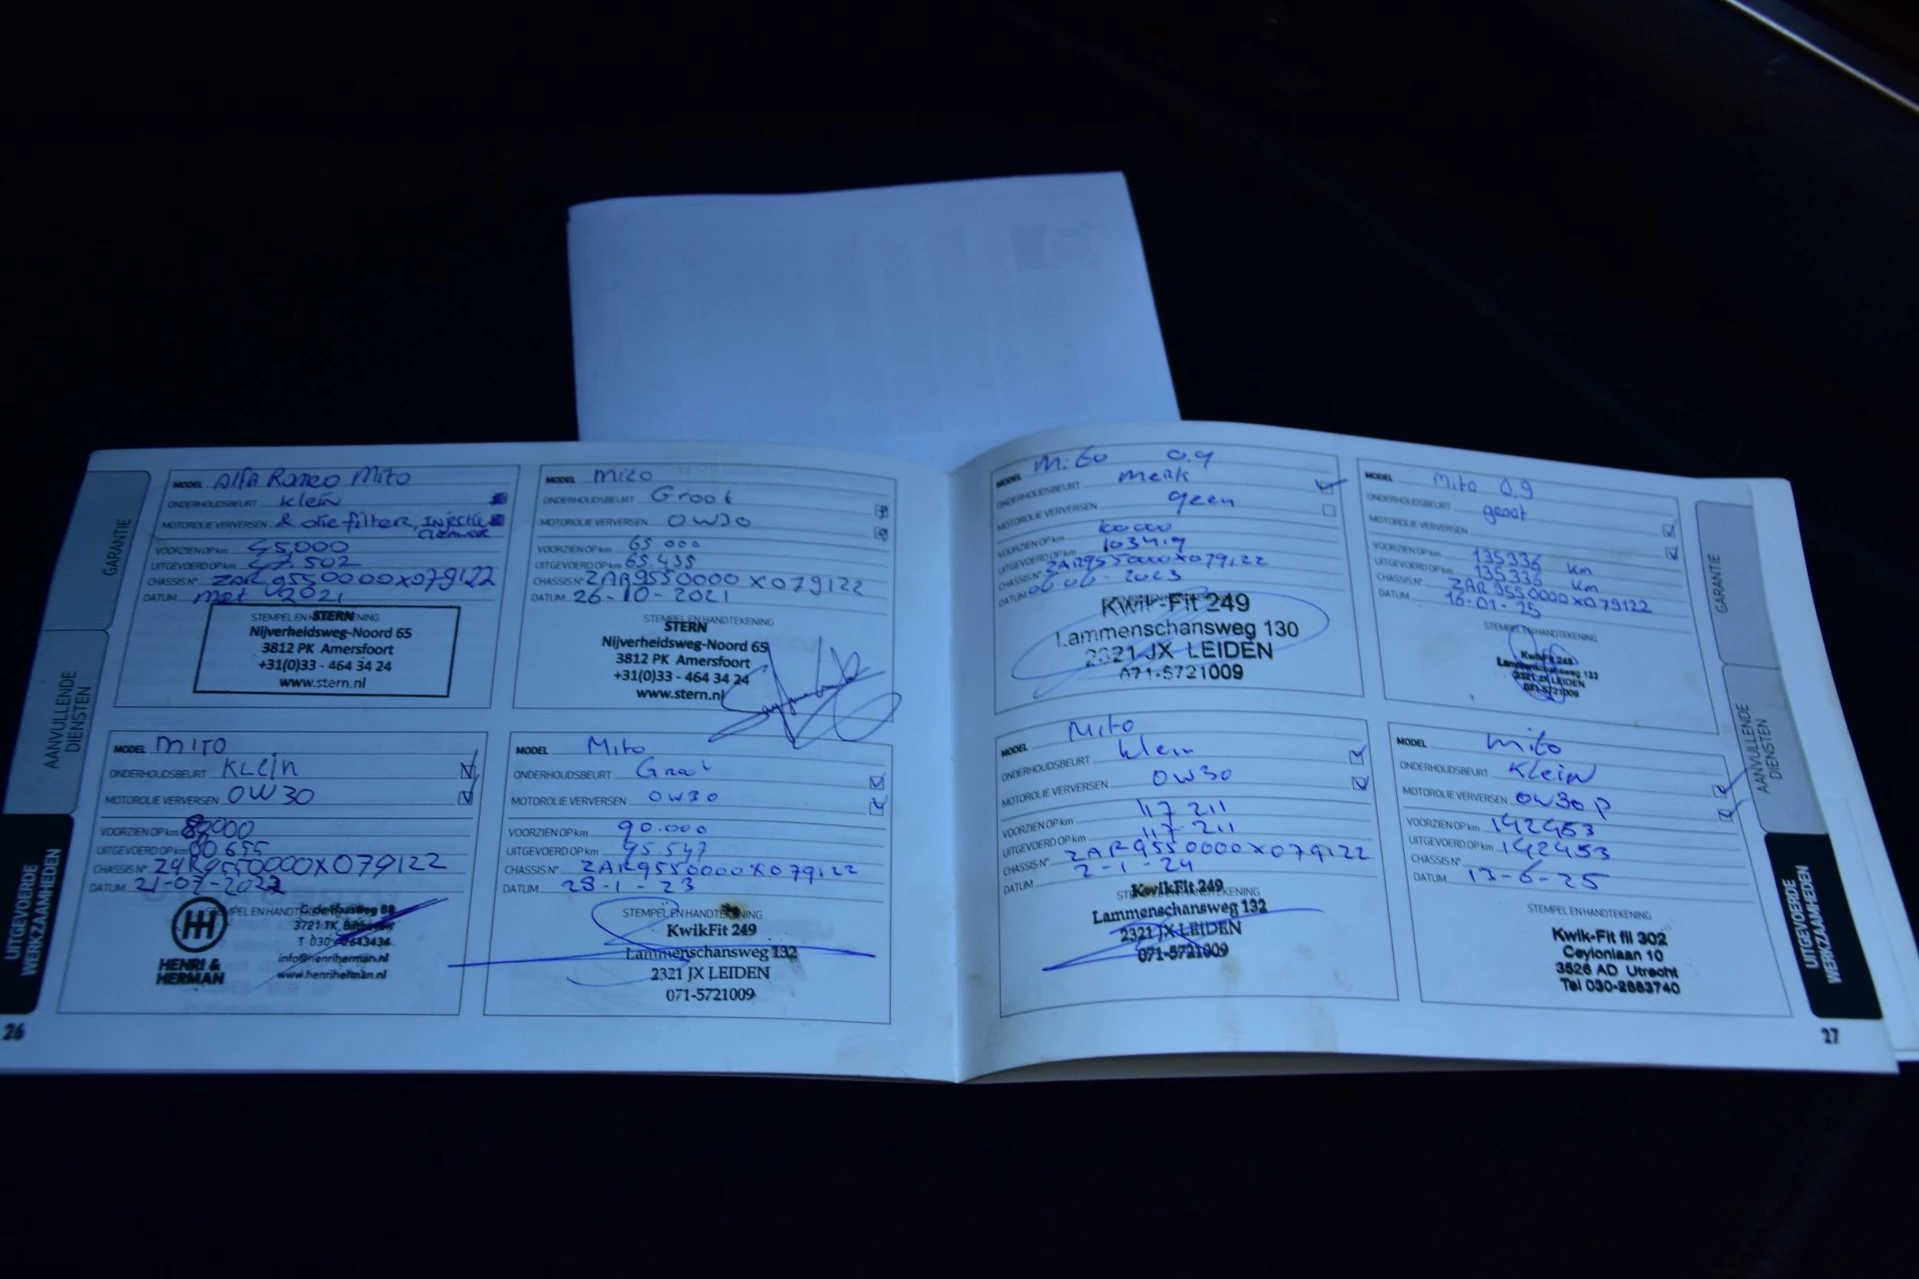 GARANTIE
AANVULLENDE
DIENSTEN
UITGEVOERDE
WERKZAAMHEDEN
26
MODEL Alfa Romeo Mito
ONDERHOUDSBEURT klein
MOTOROLIE VERVERSEN & olie filter, injectie
cleaner
VOORZIEN OP km 45,000
UITGEVOERD OP km 47.502
CHASSIS N° ZAR9550000X079122
DATUM 2021
STEMPEL EN HANDTEKENING
STERN
Nijverheidsweg-Noord 65
3812 PK Amersfoort
+31(0)33 - 464 34 24
www.stern.nl
MODEL Mito
ONDERHOUDSBEURT Groot
MOTOROLIE VERVERSEN 0W30
VOORZIEN OP km 65 000
UITGEVOERD OP km 65.435
CHASSIS N° ZAR9550000X079122
DATUM 26-10-2021
STEMPEL EN HANDTEKENING
STERN
Nijverheidsweg-Noord 65
3812 PK Amersfoort
+31(0)33 - 464 34 24
www.stern.nl
MODEL MITO
ONDERHOUDSBEURT KLEIN
MOTOROLIE VERVERSEN 0W30
VOORZIEN OP km 80000
UITGEVOERD OP km 80655
CHASSIS N° ZAR9550000X079122
DATUM 21-07-2022
STEMPEL EN HANDTEKENING
HENRI &
HERMAN
info@henriherman.nl
www.henriherman.nl
MODEL Mito
ONDERHOUDSBEURT Groot
MOTOROLIE VERVERSEN 0W30
VOORZIEN OP km 90.000
UITGEVOERD OP km 95.547
CHASSIS N° ZAR9550000X079122
DATUM 23-1-23
STEMPEL EN HANDTEKENING
KwikFit 249
Lammenschansweg 132
2321 JX LEIDEN
071-5721009
MODEL Mito 0.9
ONDERHOUDSBEURT Merk
MOTOROLIE VERVERSEN geen
VOORZIEN OP km 100000
UITGEVOERD OP km 103419
CHASSIS N° ZAR9550000X079122
DATUM 06-06-2023
Kwik-Fit 249
Lammenschansweg 130
2321 JX LEIDEN
071-5721009
MODEL Mito 0,9
ONDERHOUDSBEURT groot
MOTOROLIE VERVERSEN
VOORZIEN OP km 135336 Km
UITGEVOERD OP km 135336 Km
CHASSIS N° ZAR9550000X079122
DATUM 16-01-25
STEMPEL EN HANDTEKENING
KwikFit 249
Lammenschansweg 132
2321 JX LEIDEN
071-5721009
MODEL Mito
ONDERHOUDSBEURT klein
MOTOROLIE VERVERSEN 0W30
VOORZIEN OP km 117 211
UITGEVOERD OP km 117 211
CHASSIS N° ZAR9550000X079122
DATUM 2-1-24
STEMPEL EN HANDTEKENING
KwikFit 249
Lammenschansweg 132
2321 JX LEIDEN
071-5721009
MODEL Mito
ONDERHOUDSBEURT Klein
MOTOROLIE VERVERSEN 0W30 P
VOORZIEN OP km 142453
UITGEVOERD OP km 142453
CHASSIS N°
DATUM 13-6-25
STEMPEL EN HANDTEKENING
Kwik-Fit fil 302
Ceylonlaan 10
3526 AD Utrecht
Tel 030-2883740
GARANTIE
AANVULLENDE
DIENSTEN
UITGEVOERDE
WERKZAAMHEDEN
27